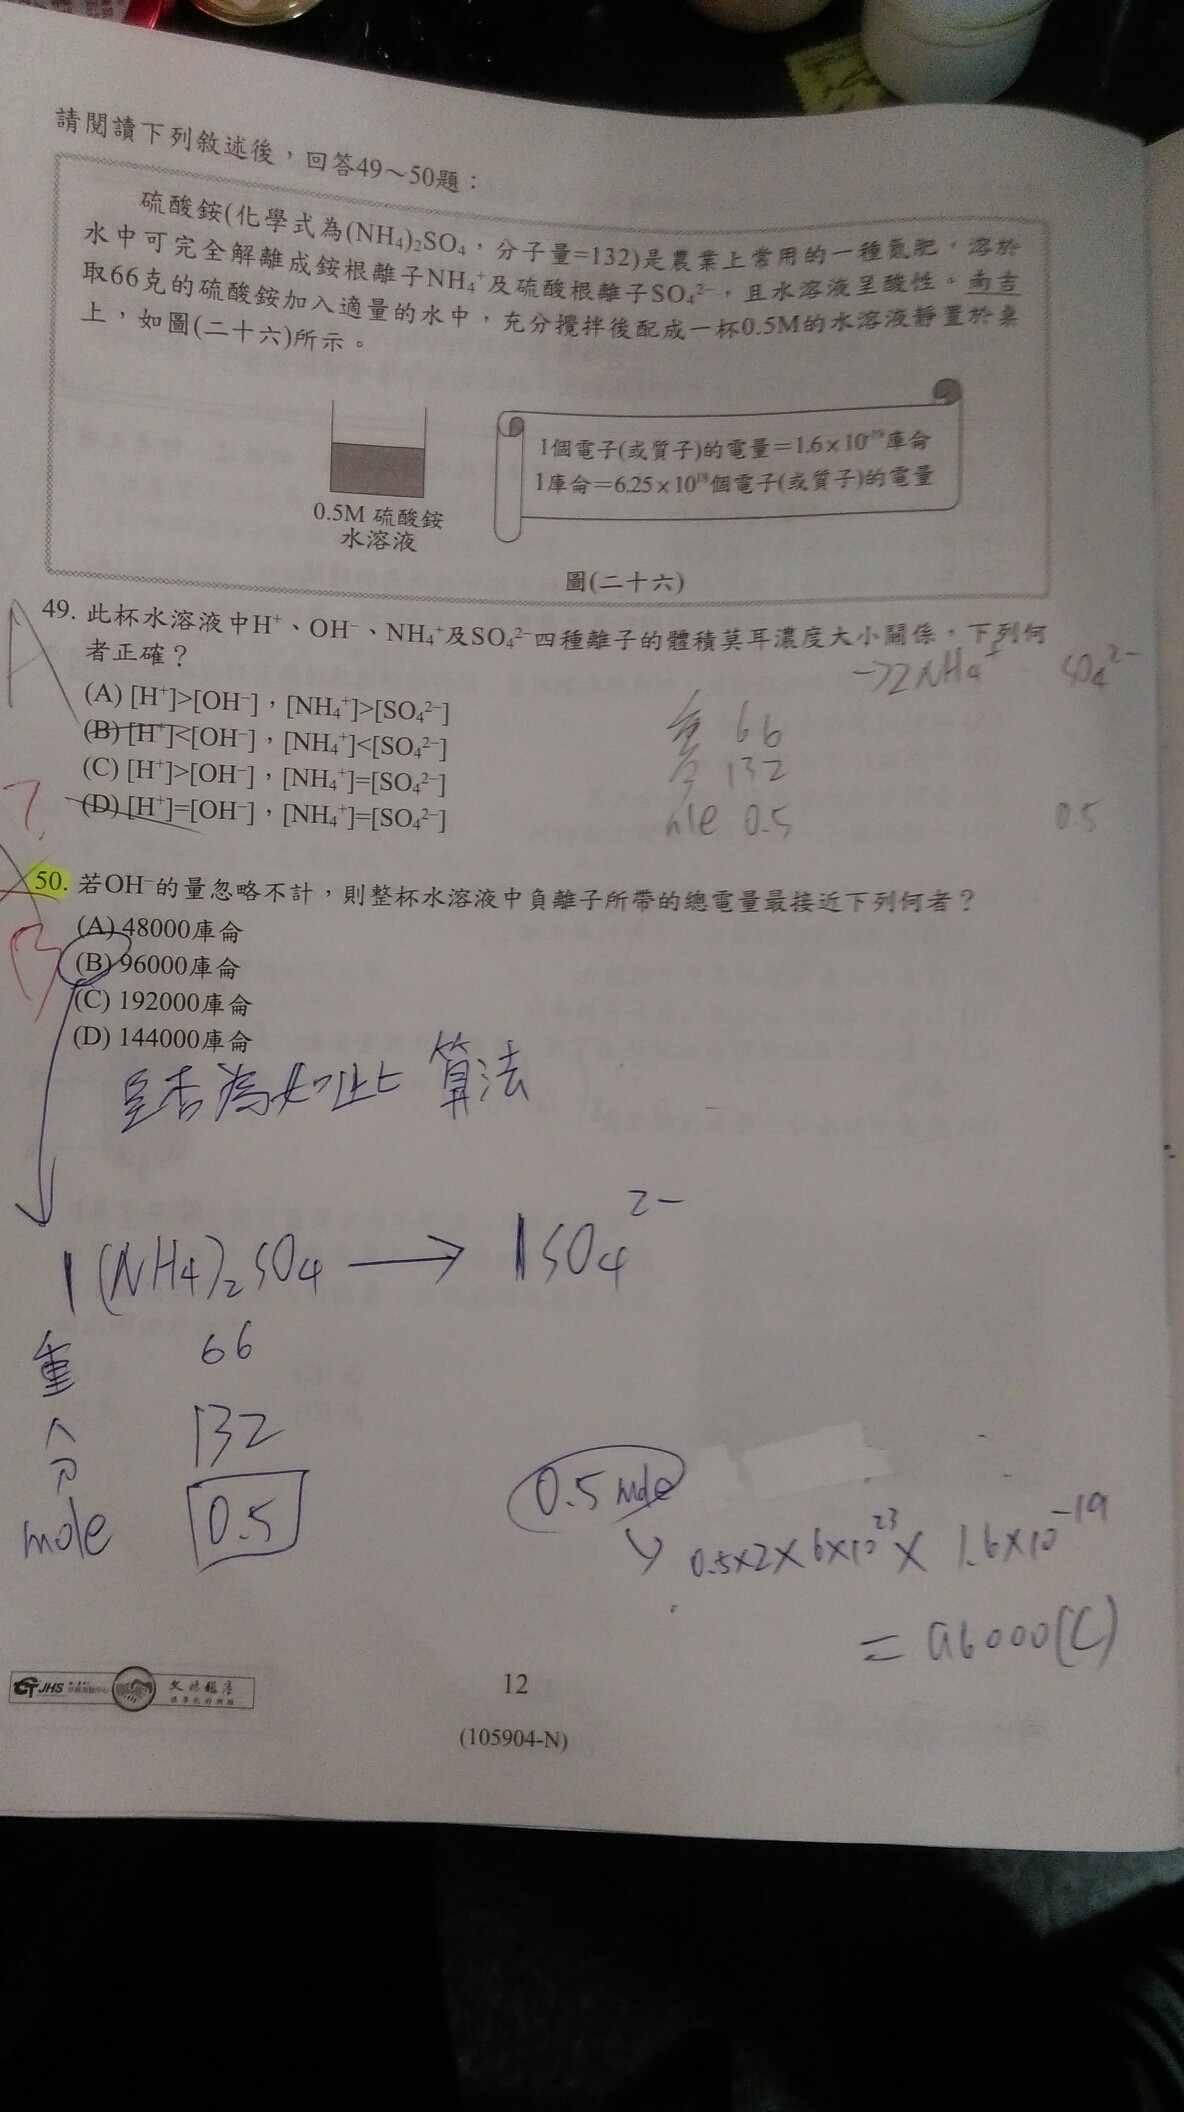 請閱讀下列敘述後，回答49～50題：
硫酸銨(化學式為(NH₄)₂SO₄，分子量=132)是農業上常用的一種氮肥，溶於
水中可完全解離成銨根離子NH₄⁺及硫酸根離子SO₄²⁻，且水溶液呈酸性。南吉
取66克的硫酸銨加入適量的水中，充分攪拌後配成一杯0.5M的水溶液靜置於桌
上，如圖(二十六)所示。
1個電子(或質子)的電量=1.6×10⁻¹⁹庫侖
1庫侖=6.25×10¹⁸個電子(或質子)的電量
0.5M 硫酸銨
水溶液
圖(二十六)
49. 此杯水溶液中H⁺、OH⁻、NH₄⁺及SO₄²⁻四種離子的體積莫耳濃度大小關係，下列何
者正確？
→2NH₄⁺ SO₄²⁻
A
(A) [H⁺]>[OH⁻]，[NH₄⁺]>[SO₄²⁻]
(B) [H⁺]<[OH⁻]，[NH₄⁺]<[SO₄²⁻]
(C) [H⁺]>[OH⁻]，[NH₄⁺]=[SO₄²⁻]
(D) [H⁺]=[OH⁻]，[NH₄⁺]=[SO₄²⁻]
重 66
分 132
mole 0.5 0.5
?
50. 若OH⁻的量忽略不計，則整杯水溶液中負離子所帶的總電量最接近下列何者？
B
(A) 48000庫侖
(B) 96000庫侖
(C) 192000庫侖
(D) 144000庫侖
是否為如此算法
1(NH₄)₂SO₄ → 1SO₄²⁻
重 66
分 132
mole 0.5
0.5 mole
0.5×2×6×10²³×1.6×10⁻¹⁹
=96000(C)
JHS
12
(105904-N)